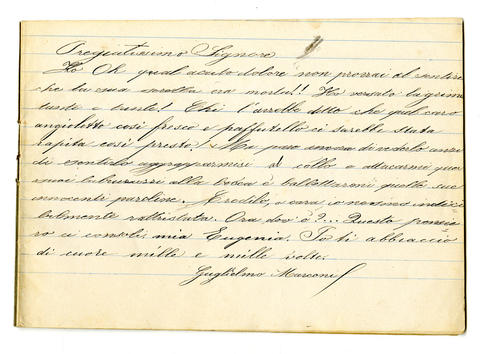 Pregiatissimo Signore
Oh qual acuto dolore non provai al sentire
che la sua era morta!! Ho versato lagrime
tante e tante! Chi l'avrebbe detto che quel caro
angioletto così fresco e paffutello ci sarebbe stata
rapita così presto! Me pare ancora di vederla anzi
di sentirla aggrapparmisi al collo e attaccarmi quei
suoi alla bocca e balbettarmi quelle sue
innocenti paroline. Credilo, o cara, io nessuno
rattristata. Ora dov'è?... Questo pensie
ro ci consoli, mia Eugenia. Io ti abbraccio
di cuore mille e mille volte.
Guglielmo Marconi